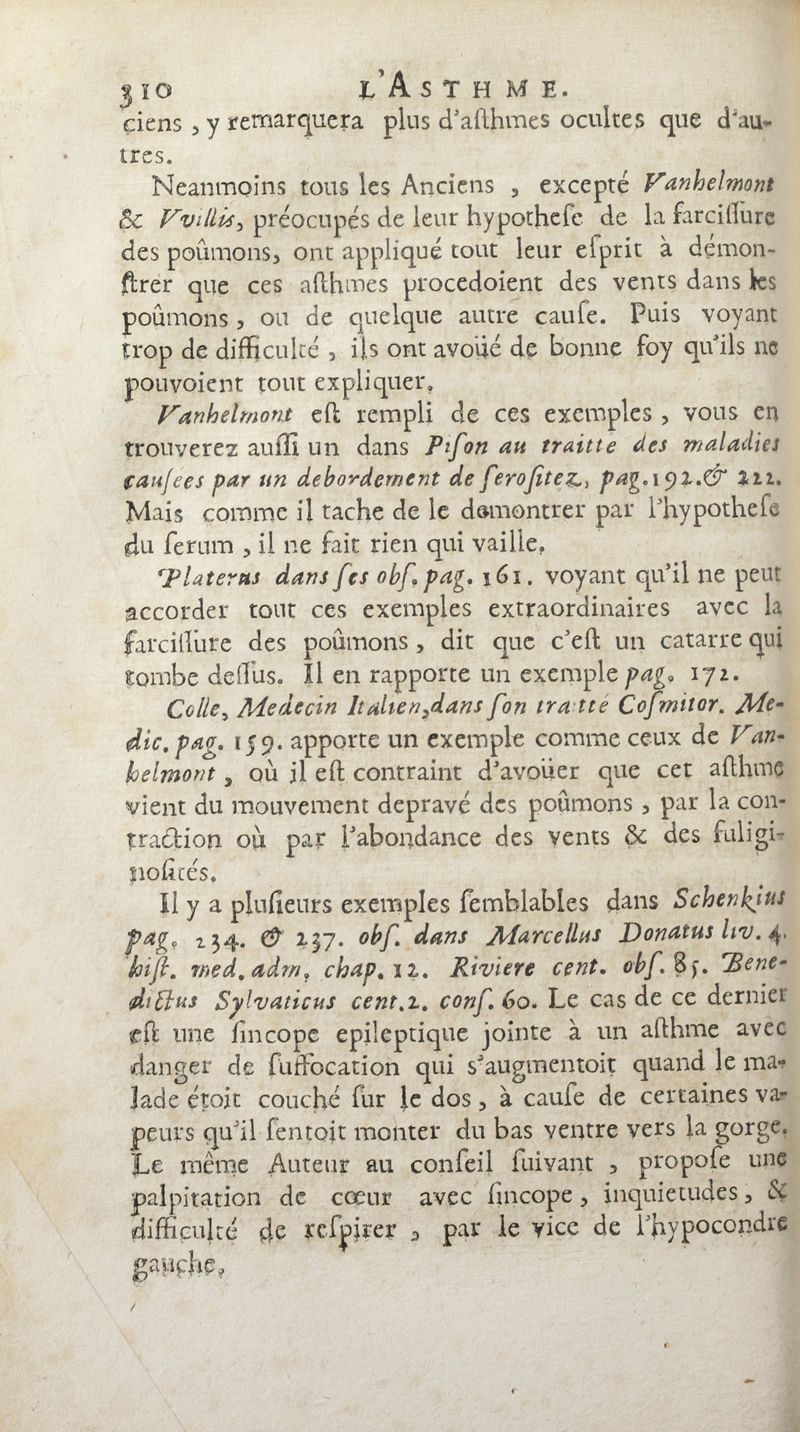 310 L'ASTHME.
ciens, y remarquera plus d'aſthmes ocultes que d'au-
tres.
Neanmoins tous les Anciens, excepté Vanhelmont
& Vvillis, préocupés de leur hypotheſe de la farciſſure
des poûmons, ont appliqué tout leur eſprit à démon-
ſtrer que ces aſthmes procedoient des vents dans les
poûmons, ou de quelque autre cauſe. Puis voyant
trop de difficulté, ils ont avoüé de bonne foy qu'ils ne
pouvoient tout expliquer.
Vanhelmont eſt rempli de ces exemples, vous en
trouverez auſſi un dans Piſon au traitte des maladies
cauſees par un debordement de ſeroſitez, pag. 192. & 211.
Mais comme il tache de le damontrer par l'hypotheſe
du ſerum, il ne fait rien qui vaille.
Platerus dans ſes obſ. pag. 161. voyant qu'il ne peut
accorder tout ces exemples extraordinaires avec la
farciſſure des poûmons, dit que c'eſt un catarre qui
tombe deſſus. Il en rapporte un exemple pag. 172.
Colle, Medecin Italien, dans ſon traitté Coſmitor. Me-
dic. pag. 159. apporte un exemple comme ceux de Van-
helmont, où il eſt contraint d'avoüer que cet aſthme
vient du mouvement depravé des poûmons, par la con-
traction où par l'abondance des vents & des fuligi-
noſités.
Il y a pluſieurs exemples ſemblables dans Schenkius
pag. 234. & 237. obſ. dans Marcellus Donatus liv. 4.
hiſt. med. adm. chap. 12. Riviere cent. obſ. 85. Bene-
dictus Sylvaticus cent. 2. conſ. 60. Le cas de ce dernier
eſt une ſincope epileptique jointe à un aſthme avec
danger de ſuffocation qui s'augmentoit quand le ma-
lade étoit couché ſur le dos, à cauſe de certaines va-
peurs qu'il ſentoit monter du bas ventre vers la gorge.
Le même Auteur au conſeil ſuivant, propoſe une
palpitation de cœur avec ſincope, inquietudes, &
difficulté de reſpirer, par le vice de l'hypocondre
gauche,